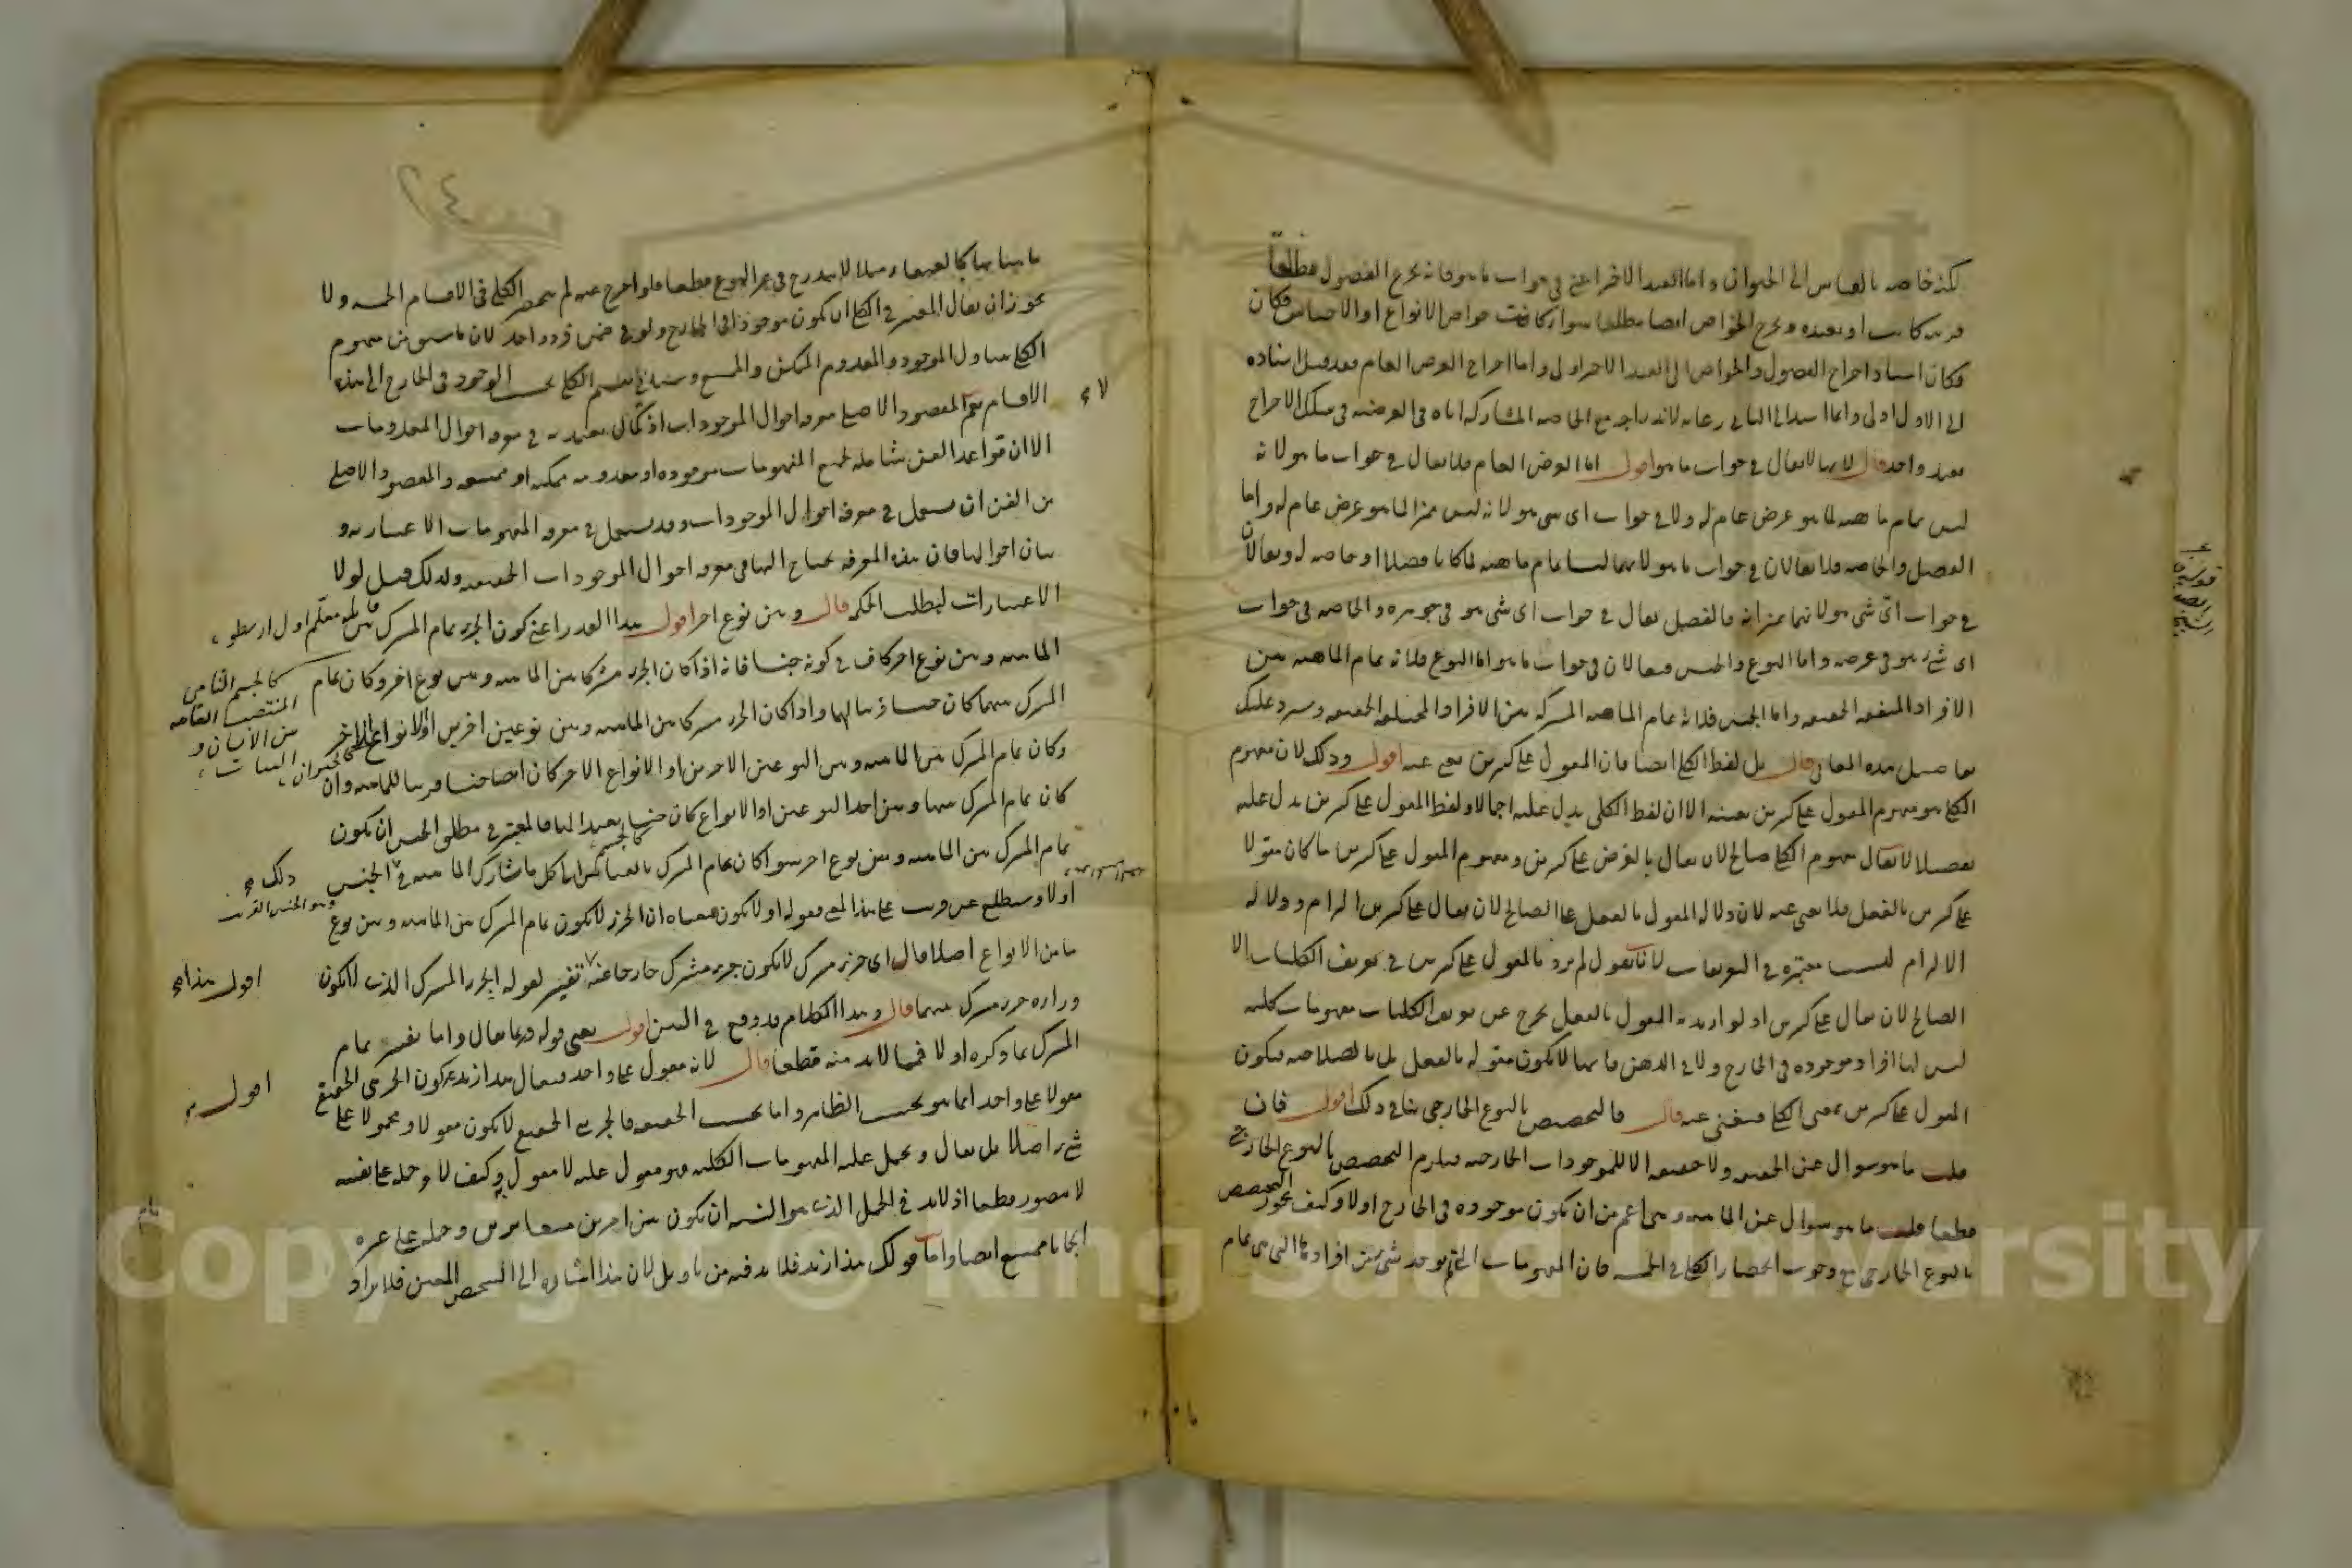 لكنه خاصة بالقياس الى الحيوان واما القيد الاخر اعني في جواب ما هو فانه يخرج الفصول مطلقا
قريبة كانت او بعيدة ويخرج الخواص ايضا مطلقا سواء كانت خواص الانواع او الاجناس فكان
فكان اسناد اخراج الفصول والخواص الى القيد الاخير اولى واما اخراج العرض العام فقد قيل اسناده
الى الاول اولى وانما اسند الى الثاني رعاية لاندراجه مع الخاصة المشاركة اياه في العرضية في سلك الاخراج
بقيد واحد قال لانها لا تقال في جواب ما هو اقول اما العرض العام فلا يقال في جواب ما هو لانه
ليس تمام ماهية لما هو عرض عام له ولا في جواب اي شيء هو لانه ليس مميزا لما هو عرض عام له واما
الفصل والخاصة فلا يقالان في جواب ما هو لانهما ليسا تمام ماهية لما كانا فصلا او خاصة له ويقالان
في جواب اي شيء هو لانهما يميزانه فالفصل يقال في جواب اي شيء هو في جوهره والخاصة في جواب
اي شيء هو في عرضه واما النوع والجنس فيقالان في جواب ما هو اما النوع فلانه تمام الماهية بين
الافراد المتفقة الحقيقة واما الجنس فلانه تمام الماهية المشتركة بين الافراد المختلفة الحقيقة وسيرد عليك
تفاصيل هذه المعاني قال بل لفظ الكلي ايضا فان المقول على كثيرين يغني عنه اقول وذلك لان مفهوم
الكلي هو مفهوم المقول على كثيرين بعينه الا ان لفظ الكلي يدل عليه اجمالا ولفظ المقول على كثيرين يدل عليه
تفصيلا لا يقال مفهوم الكلي صالح لان يقال بالفرض على كثيرين ومفهوم المقول على كثيرين ما كان مقولا
على كثيرين بالفعل فلا يغني عنه لان دلالة المقول بالفعل على الصالح لان يقال على كثيرين التزام ودلالة
الالتزام ليست معتبرة في التعريفات لانا نقول لم يرد بالمقول على كثيرين في تعريف الكليات الا
الصالح لان يقال على كثيرين اذ لو اريد به المقول بالفعل يخرج عن تعريف الكليات مفهومات كلية
ليس لها افراد موجودة في الخارج ولا في الذهن فانها لا تكون مقولة بالفعل بل بالصلاحية فيكون
المقول على كثيرين بمعنى الكلي فيغني عنه قال فالتخصيص بالنوع الخارجي ينافي ذلك اقول فان
قلت ما هو سؤال عن الحقيقة ولا حقيقة الا للموجودات الخارجية فيلزم التخصيص بالنوع الخارجي
قطعا قلت ما هو سؤال عن الماهية وهي اعم من ان تكون موجودة في الخارج او لا وكيف يجوز التخصيص
بالنوع الخارجي مع وجوب انحصار الكلي في الخمسة فان المفهومات التي لم يوجد شيء من افرادها التي هي تمام
ماهياتها كالعنقاء مثلا لا يندرج في غير النوع قطعا فلو اخرج عنه لم ينحصر الكلي في الاقسام الخمسة ولا
يجوز ان يقال المعتبر في الكلي ان يكون موجودا في الخارج ولو في ضمن فرد واحد لان ما سبق من مفهوم
الكلي يتناول الموجود والمعدوم الممكن والممتنع وسيأتي تقسيم الكلي بحسب الوجود في الخارج الى هذه
الاقسام نعم المقصود الاصلي معرفة احوال الموجودات اذ لا كمال يعتد به في معرفة احوال المعدومات
الا ان قواعد الفن شاملة لجميع المفهومات موجودة او معدومة ممكنة او ممتنعة والمقصود الاصلي
من الفن ان يستعمل في معرفة احوال الموجودات وقد يستعمل في معرفة المفهومات الاعتبارية و
بيان احوالها فان هذه المعرفة يحتاج اليها في معرفة احوال الموجودات الحقيقية ولذلك قيل لولا
الاعتبارات لبطلت الحكمة قال وبين نوع اخر اقول هذا القدر اعني كون الجزء تمام المشترك بين
قائله معلم اول ارسطو
الماهية وبين نوع اخر كاف في كونه جنسا فانه اذا كان الجزء مشتركا بين الماهية وبين نوع اخر وكان تمام
المشترك بينهما كان جنسا قريبا لها واذا كان الجزء مشتركا بين الماهية وبين نوعين اخرين او الانواع الاخر
كالجسم النامي
بين الانسان و
النباتات
وكان تمام المشترك بين الماهية وبين النوعين الاخرين او الانواع الاخر كان ايضا جنسا قريبا للماهية وان
كان تمام المشترك بينها وبين احد النوعين او الانواع كان جنسا بعيدا لها فالمعتبر في مطلق الجنس ان يكون
تمام المشترك بين الماهية وبين نوع اخر سواء كان تمام المشترك بالقياس الى كل ما يشارك الماهية في ذلك الجنس
وهو الجنس القريب
او لا وستطلع عن قريب على هذا المعنى فقوله او لا يكون معناه ان الجزء لا يكون تمام المشترك بين الماهية وبين نوع
ما من الانواع اصلا قال اي جزء مشترك لا يكون جزء مشترك خارجا عنه اقول هذا تفسير لقوله الجزء المشترك الذي لا يكون
وراءه جزء مشترك بينهما قال وهذا الكلام قد وقع في البين اقول يعني قوله وربما يقال واما تفسير تمام
المشترك بما ذكره اولا فمما لا بد منه قطعا قال لانه مقول على واحد فيقال هذا زيد اقول كون الجزئي الحقيقي
مقولا على واحد انما هو بحسب الظاهر واما بحسب الحقيقة فالجزئي الحقيقي لا يكون مقولا ومحمولا على
شيء اصلا بل يقال ويحمل عليه المفهومات الكلية فهو مقول عليه لا مقول به وكيف لا وحمله على نفسه
لا يتصور قطعا اذ لا بد في الحمل الذي هو النسبة ان تكون بين امرين متغايرين وحمله على غيره
ايجابا ممتنع ايضا واما قولك هذا زيد فلا بد فيه من تأويل لان هذا اشارة الى الشخص المعين فلا يراد
Copyright © King Saud University